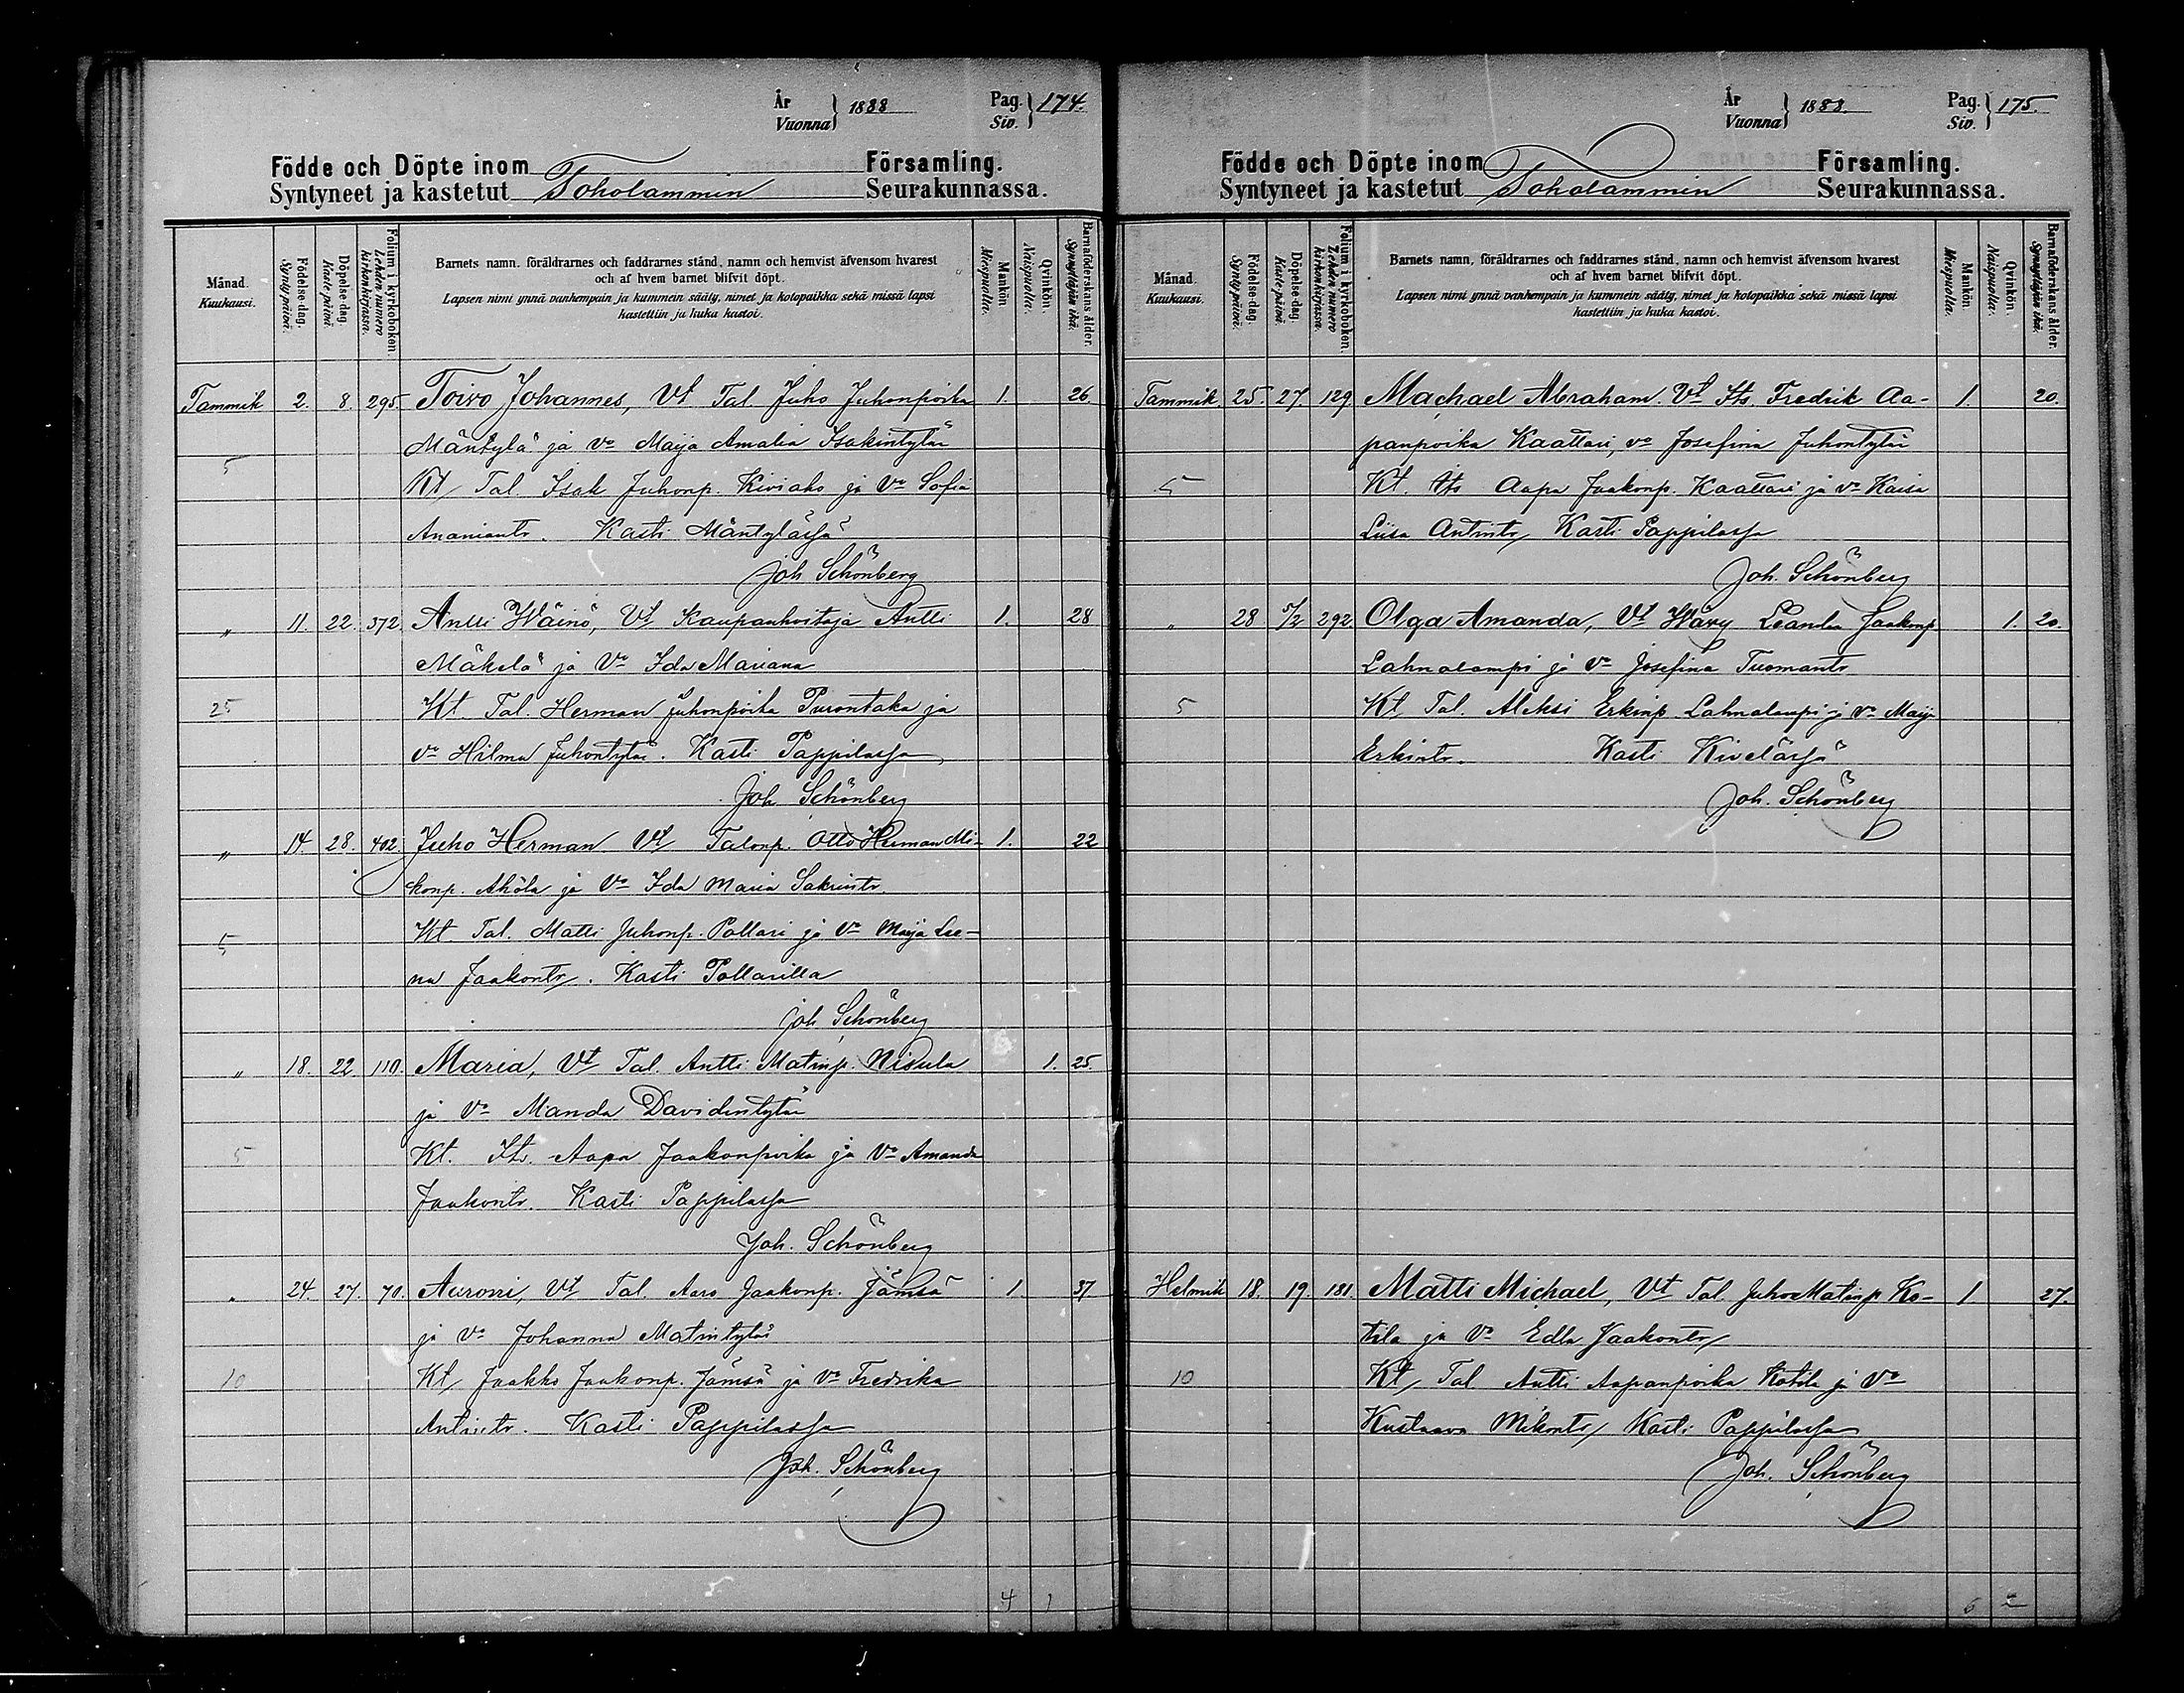 År
Vuonna } 1888
Pag.
Siv. } 174.
Födde och Döpte inom Församling.
Syntyneet ja kastetut Toholammin Seurakunnassa.
Månad.
Kuukausi.
Födelse-dag.
Synty päivä.
Döpelse-dag.
Kaste päivä.
Folium i kyrkoboken.
Lehden numero kirkonkirjassa.
Barnets namn, föräldrarnes och faddrarnes stånd, namn och hemvist äfvensom hvarest
och af hvem barnet blifvit döpt.
Lapsen nimi ynnä vanhempain ja kummein sääty, nimet ja kotopaikka sekä missä lapsi
kastettiin ja kuka kastoi.
Mankön.
Miespuolta.
Qvinkön.
Naispuolta.
Barnaföderskans ålder.
Synnyttäjän ikä.
Tammik 2. 8. 295. Toivo Johannes, Vt Tal Juho Juhonpoika 1. 26.
Mäntylä ja Vo Maija Amalia Isakintytär
5 Kt Tal. Isak Juhonp. Kiviaho ja Vo Sofia
Ananiantr. Kasti Mäntylässä
Joh Schönberg
" 11. 22. 372. Antti Wäinö, Vt Kaupanhoitaja Antti 1. 28
Mäkelä ja Vo Ida Mariana
25 Kt. Tal. Herman Juhonpoika Purontaka ja
Vo Hilma Juhontytär. Kasti Pappilassa
Joh Schönberg
" 14. 28. 402. Juho Herman Vt Talonp. Otto Herman Mi- 1. 22
konp. Ahola ja Vo Ida Maria Sakrintr.
5 Kt Tal. Matti Juhonp. Pollari ja Vo Maija Lee-
na Jaakontr. Kasti Pollarilla
Joh Schönberg
" 18. 22. 110. Maria, Vt Tal. Antti Matinp. Nisula 1. 25.
ja Vo Manda Davidintytär
5 Kt. Its. Aapa Jaakonpoika ja Vo Amanda
Jaakontr. Kasti Pappilassa
Joh. Schönberg
" 24. 27. 70. Auroni, Vt Tal. Aaro Jaakonp. Jämsä 1. 37
ja Vo Johanna Matintytär
10 Kt Jaakko Jaakonp. Jämsä ja Vo Fredrika
Antintr. Kasti Pappilassa
Joh. Schönberg
4 1
År
Vuonna } 1888.
Pag.
Siv. } 175.
Födde och Döpte inom Församling.
Syntyneet ja kastetut Toholammin Seurakunnassa.
Månad.
Kuukausi.
Födelse-dag.
Synty päivä.
Döpelse-dag.
Kaste päivä.
Folium i kyrkoboken.
Lehden numero kirkonkirjassa.
Barnets namn, föräldrarnes och faddrarnes stånd, namn och hemvist äfvensom hvarest
och af hvem barnet blifvit döpt.
Lapsen nimi ynnä vanhempain ja kummein sääty, nimet ja kotopaikka sekä missä lapsi
kastettiin ja kuka kastoi.
Mankön.
Miespuolta.
Qvinkön.
Naispuolta.
Barnaföderskans ålder.
Synnyttäjän ikä.
Tammik. 25. 27. 129. Machael Abraham. Vt Its. Fredrik Aa- 1. 20.
panpoika Kaattari, vo Josefina Juhontytär
5 Kt. Its Aapa Jaakonp. Kaattari ja vo Kaisa
Liisa Antintr, Kasti Pappilassa
Joh. Schönberg
" 28 5/2 292 Olga Amanda, Vt Wävy Leander Jaakonp 1. 20.
Lahnalampi ja Vo Josefina Tuomantr
5 Kt Tal. Aleksi Erkinp. Lahnalampi ja Vo Maija
Erkintr. Kasti Kivelässä
Joh. Schönberg
Helmik 18. 19. 181. Matti Michael, Vt Tal. Juho Matinp Ko- 1 27.
tila ja Vo Edla Jaakontr
10 Kt, Tal Antti Aapanpoika Kotila ja Vo
Kustaava Mikontr, Kasti Pappilassa
Joh. Schönberg
5 2